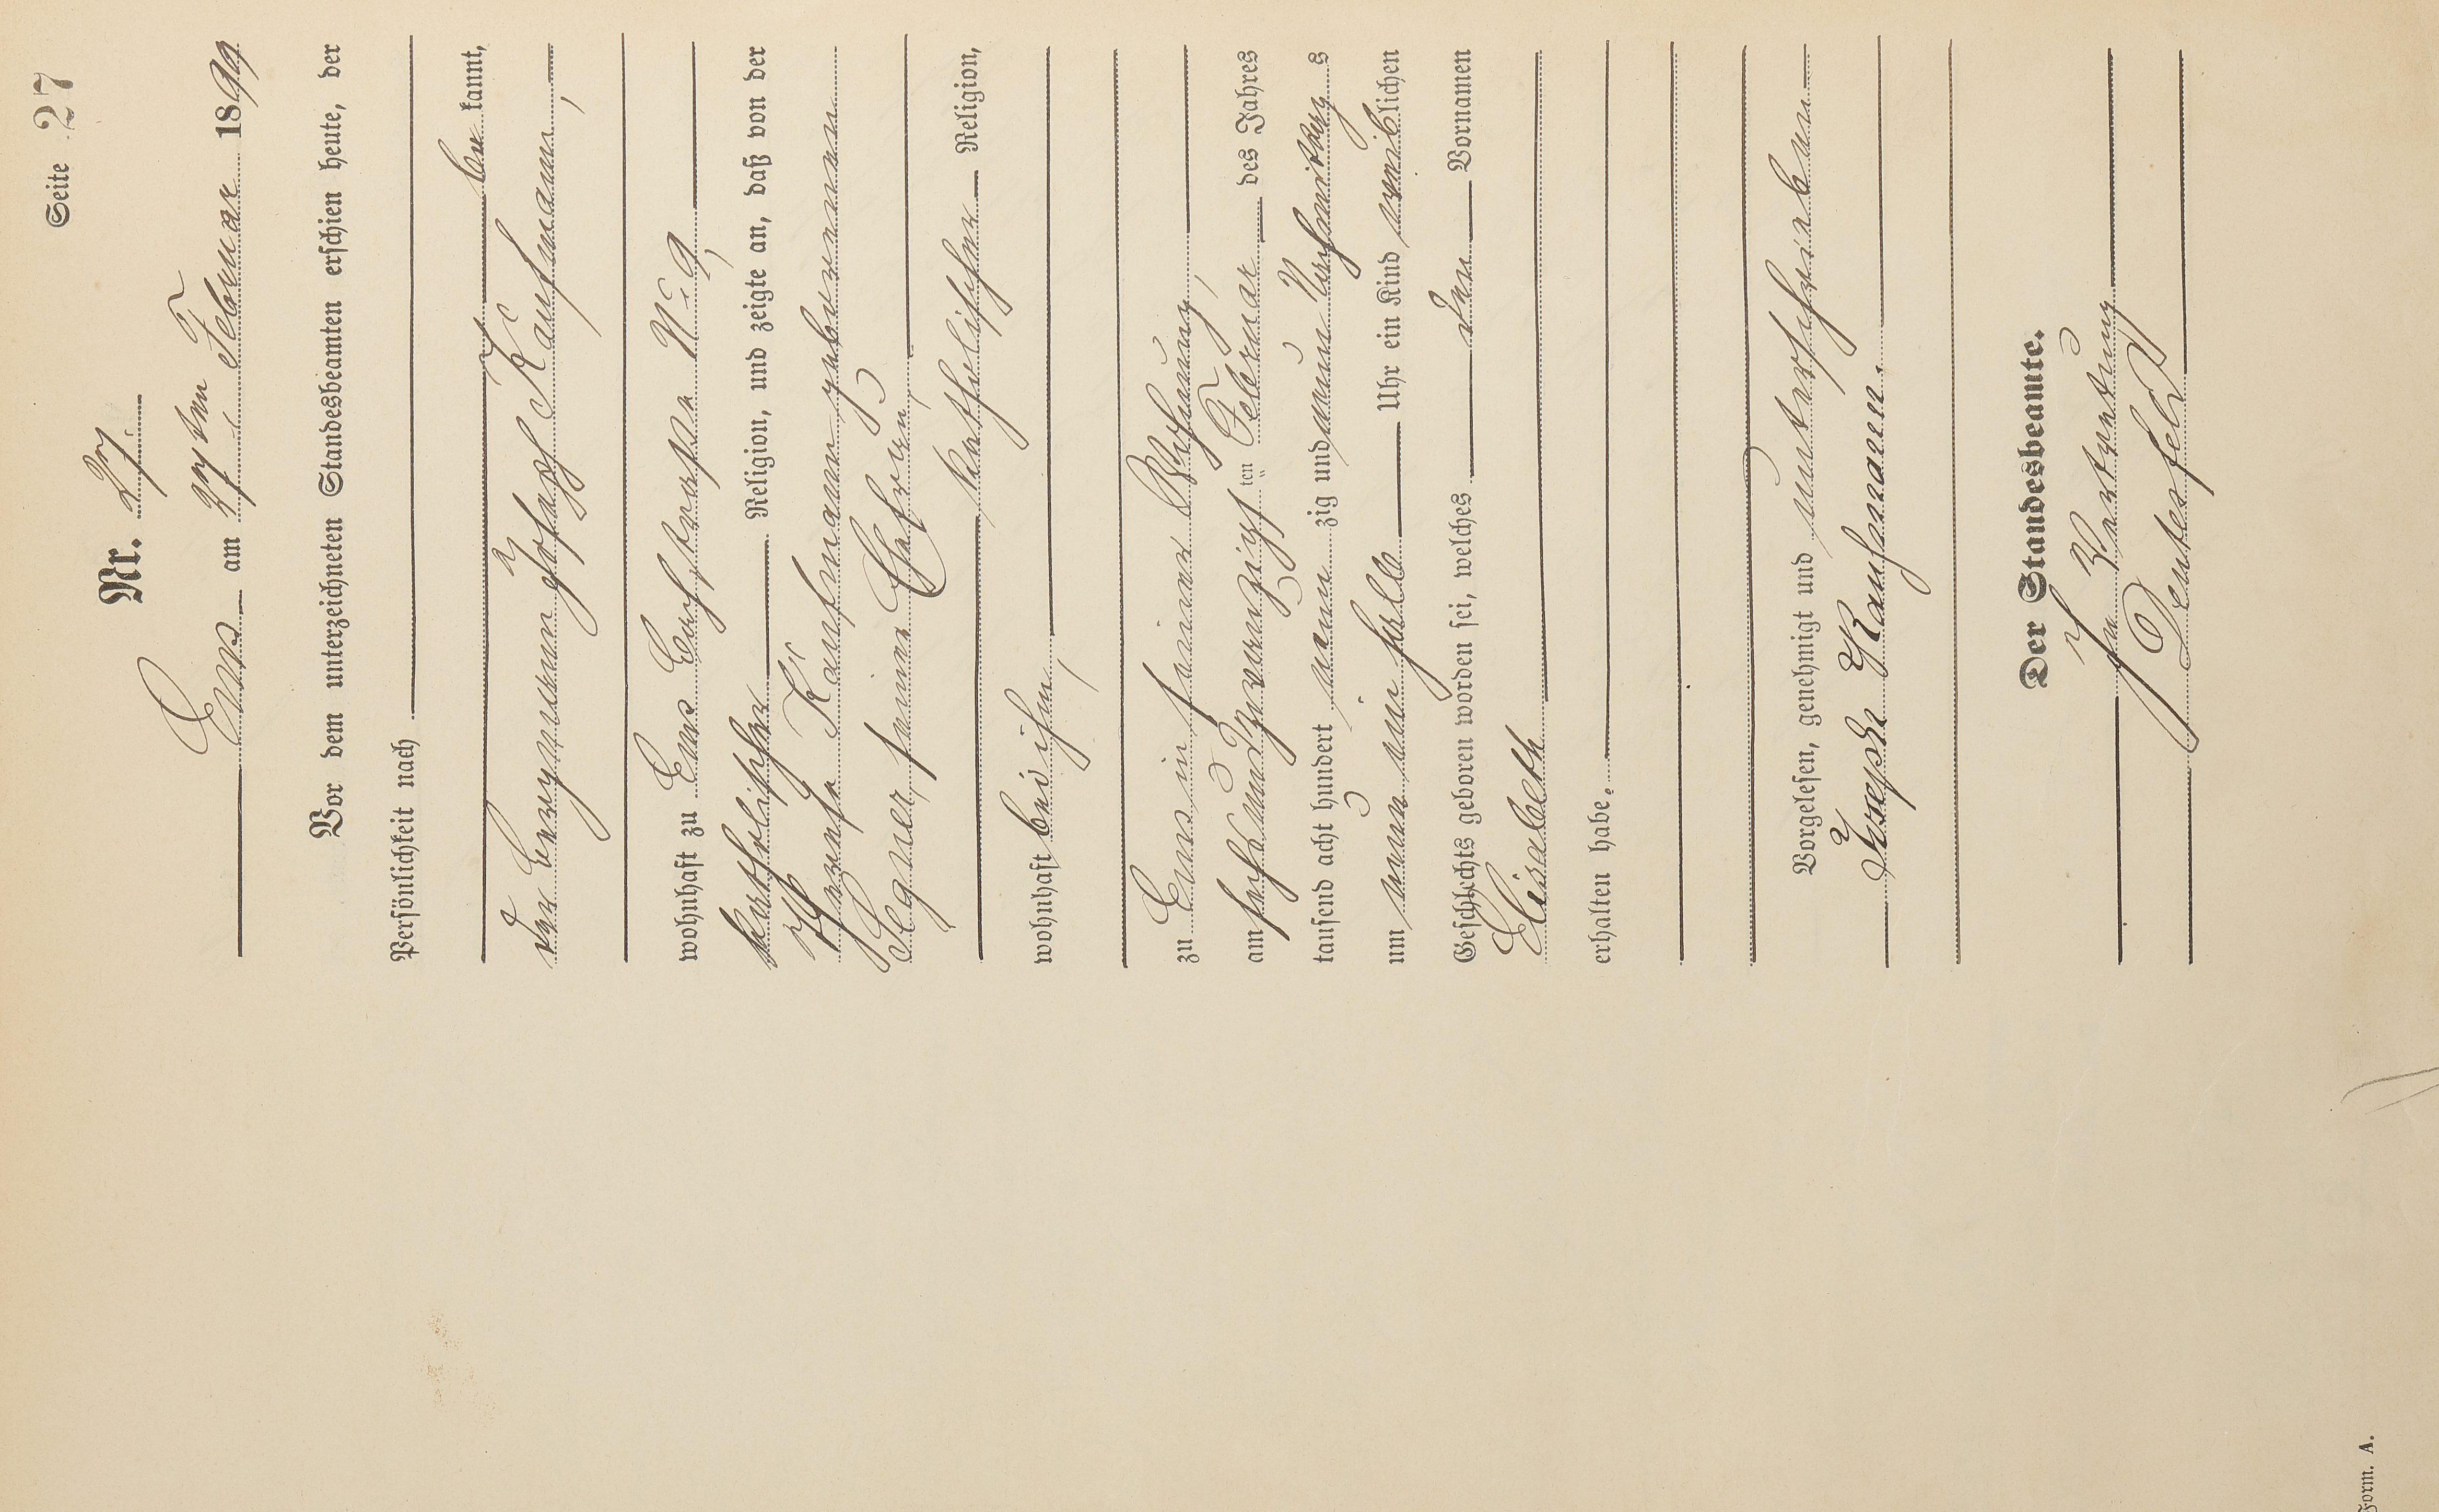 Seite 27
Nr. 27.
Ems am 27ten Februar 1899
Vor dem unterzeichneten Standesbeamten erschien heute, der
Persönlichkeit nach
be kannt,
der Bergmann Joseph Kaufmann,
wohnhaft zu Ems Bachstraße No 9,
katholischer Religion, und zeigte an, daß von der
Kaufmann geborenen
seiner Ehefrau,
katholischer Religion,
wohnhaft bei ihm,
zu Ems in seiner Wohnung,
am sechsundzwanzigsten Februar des Jahres
tausend acht hundert neun zig und neun Nachmittags
um neun ein halb Uhr ein Kind weiblichen
Geschlechts geboren worden sei, welches den Vornamen
Elisabeth
erhalten habe.
Vorgelesen, genehmigt und unterschrieben
Joseph Kaufmann.
Der Standesbeamte.
In Vertretung
Form. A.